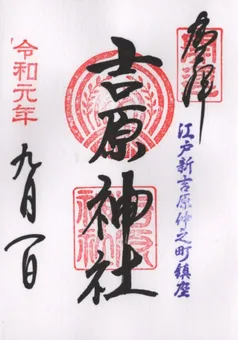 奉拝
江戸新吉原仲之町鎮座
吉原神社
令和元年
九月一日